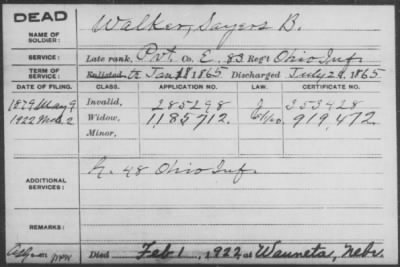 DEAD
Walker, Sayers B.
NAME OF SOLDIER:
SERVICE: Late rank, Pvt. Co. E. 83 Reg't Ohio Inf.
TERM OF SERVICE: Enlisted Jan 18 1865 Discharged July 24, 1865
DATE OF FILING. CLASS. APPLICATION NO. LAW. CERTIFICATE NO.
1879 May 9 Invalid, 285298 353428
1922 Mch 2 Widow, 1185712. 919,472.
Minor,
ADDITIONAL SERVICES: K. 48 Ohio Inf.
REMARKS:
Died Feb 1, 1922, at Wauneta, Nebr.